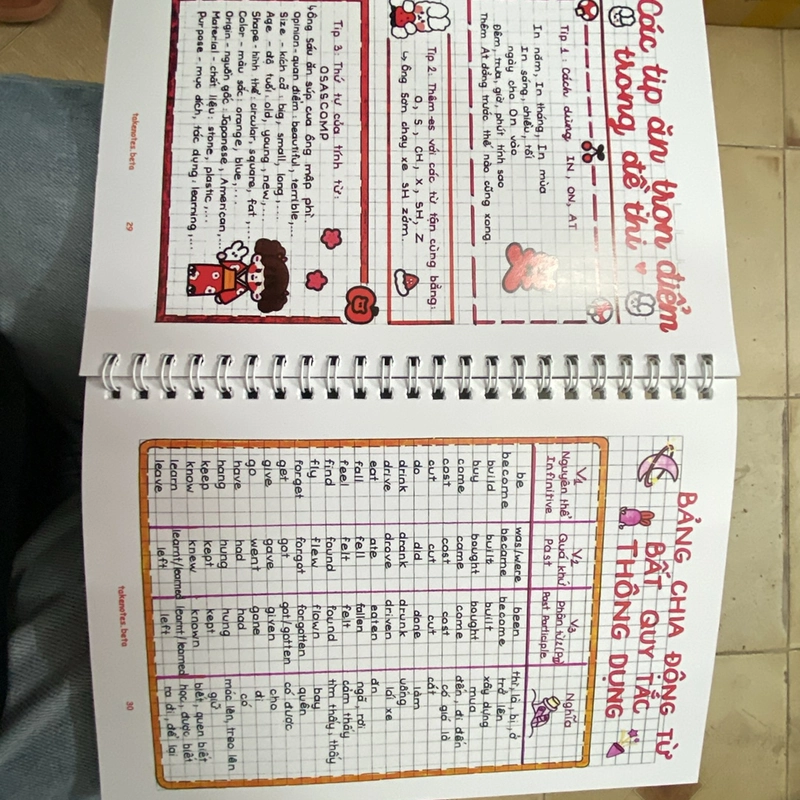 Các tip ăn trọn điểm
trong đề thi
Tip 1: Cách dùng IN, ON, AT
In năm, In tháng, In mùa
In sáng, chiều, tối
ngày cho On vào
Đêm, trưa, giờ, phút tính sao
Thêm At đằng trước thế nào cũng xong.
Tip 2: Thêm es với các từ tận cùng bằng:
O, S, CH, X, SH, Z
↳ Ông Sơn chạy xe SH zởm.
Tip 3: Thứ tự của tính từ:
OSASCOMP
↳ Ông sáu ăn súp cua ông mập phì
Opinion - quan điểm: beautiful, terrible,...
Size - kích cỡ: big, small, long,...
Age - độ tuổi: old, young, new,...
Shape - hình thể: circular, square, fat,...
Color - màu sắc: orange, blue,...
Origin - nguồn gốc: Japanese, American,...
Material - chất liệu: stone, plastic,...
Purpose - mục đích, tác dụng: learning,...
takenotes.beta 29
BẢNG CHIA ĐỘNG TỪ
BẤT QUY TẮC
THÔNG DỤNG
V1 V2 V3 Nghĩa
Nguyên thể Quá khứ Phân từ 2 (PP)
Infinitive Past Past Participle
be was/were been thì, là, bị, ở
become became become trở lên
build built built xây dựng
buy bought bought mua
come came come đến, đi đến
cost cost cost có giá là
cut cut cut cắt
do did done làm
drink drank drunk uống
drive drove driven lái xe
eat ate eaten ăn
fall fell fallen ngã, rơi
feel felt felt cảm thấy
find found found tìm thấy, thấy
fly flew flown bay
forget forgot forgotten quên
get got got/gotten có được
give gave given cho
go went gone đi
have had had có
hang hung hung móc lên, treo lên
keep kept kept giữ
know knew known biết, quen biết
learn learnt/learned learnt/learned học, được biết
leave left left ra đi, để lại
takenotes.beta 30